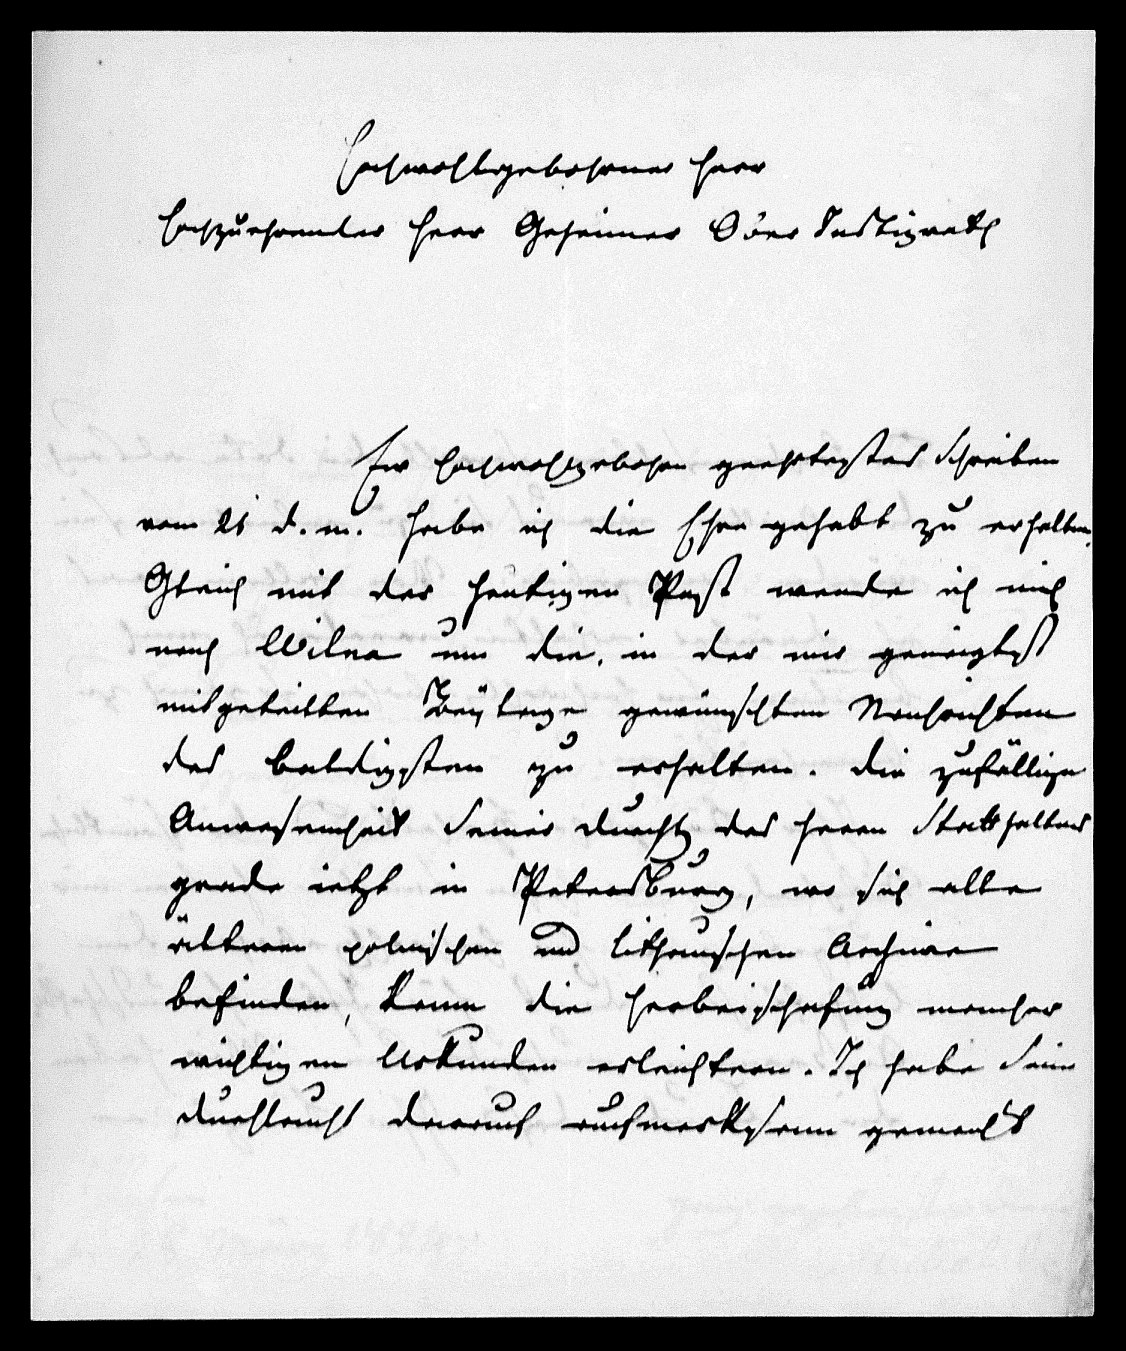 Hochwohlgebohrner Herr
Hochzuehrender Herr Geheimer Ober Justizrath
Ew Hochwohlgebohren geehrtestes Schreiben
vom 21 d. m. habe ich die Ehre gehabt zu erhalten.
Gleich mit der heutigen Post wende ich mich
nach Wilna um die, in der mir geneigtest
mitgetheilten Beÿlage gewünschten Nachrichten
des baldigsten zu erhalten. Die zufällige
Anwesenheit Seiner Durchl des Herrn Statthalters
grade jetzt in Petersburg, wo sich alle
älteren polnischen und lithauischen Archive
befinden, kann die Herbeischafung mancher
wichtigen Urkunden erleichtern. Ich habe Seine
Durchlaucht darauf aufmerksam gemacht